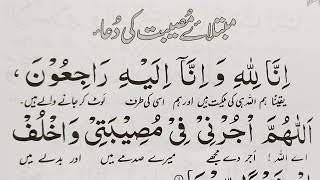 مبتلائے مُصیبت کی دُعاء
اِنَّا لِلّٰهِ وَ اِنَّاۤ اِلَیْهِ رَاجِعُوْنَ ،
یقیناً ہم اللہ ہی کی ملکیت ہیں اور ہم اسی کی طرف لوٹ کر جانے والے ہیں۔
اَللّٰهُمَّ اْجُرْنِیْ فِیْ مُصِیْبَتِیْ وَاخْلُفْ
اے اللہ! اجر دے مجھے میرے صدمے میں اور بدلے میں